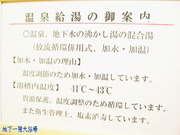 温泉給湯の御案内
○温泉、地下水の沸かし湯の混合湯
(放流循環併用式、加水・加温)
【加水・加温の理由】
温度調節のため加水・加温しています。
【浴槽内温度】 41℃~43℃
資源保護、温度調整のため循環しています。
また衛生管理上、塩素消毒しています。
地下一階大浴場